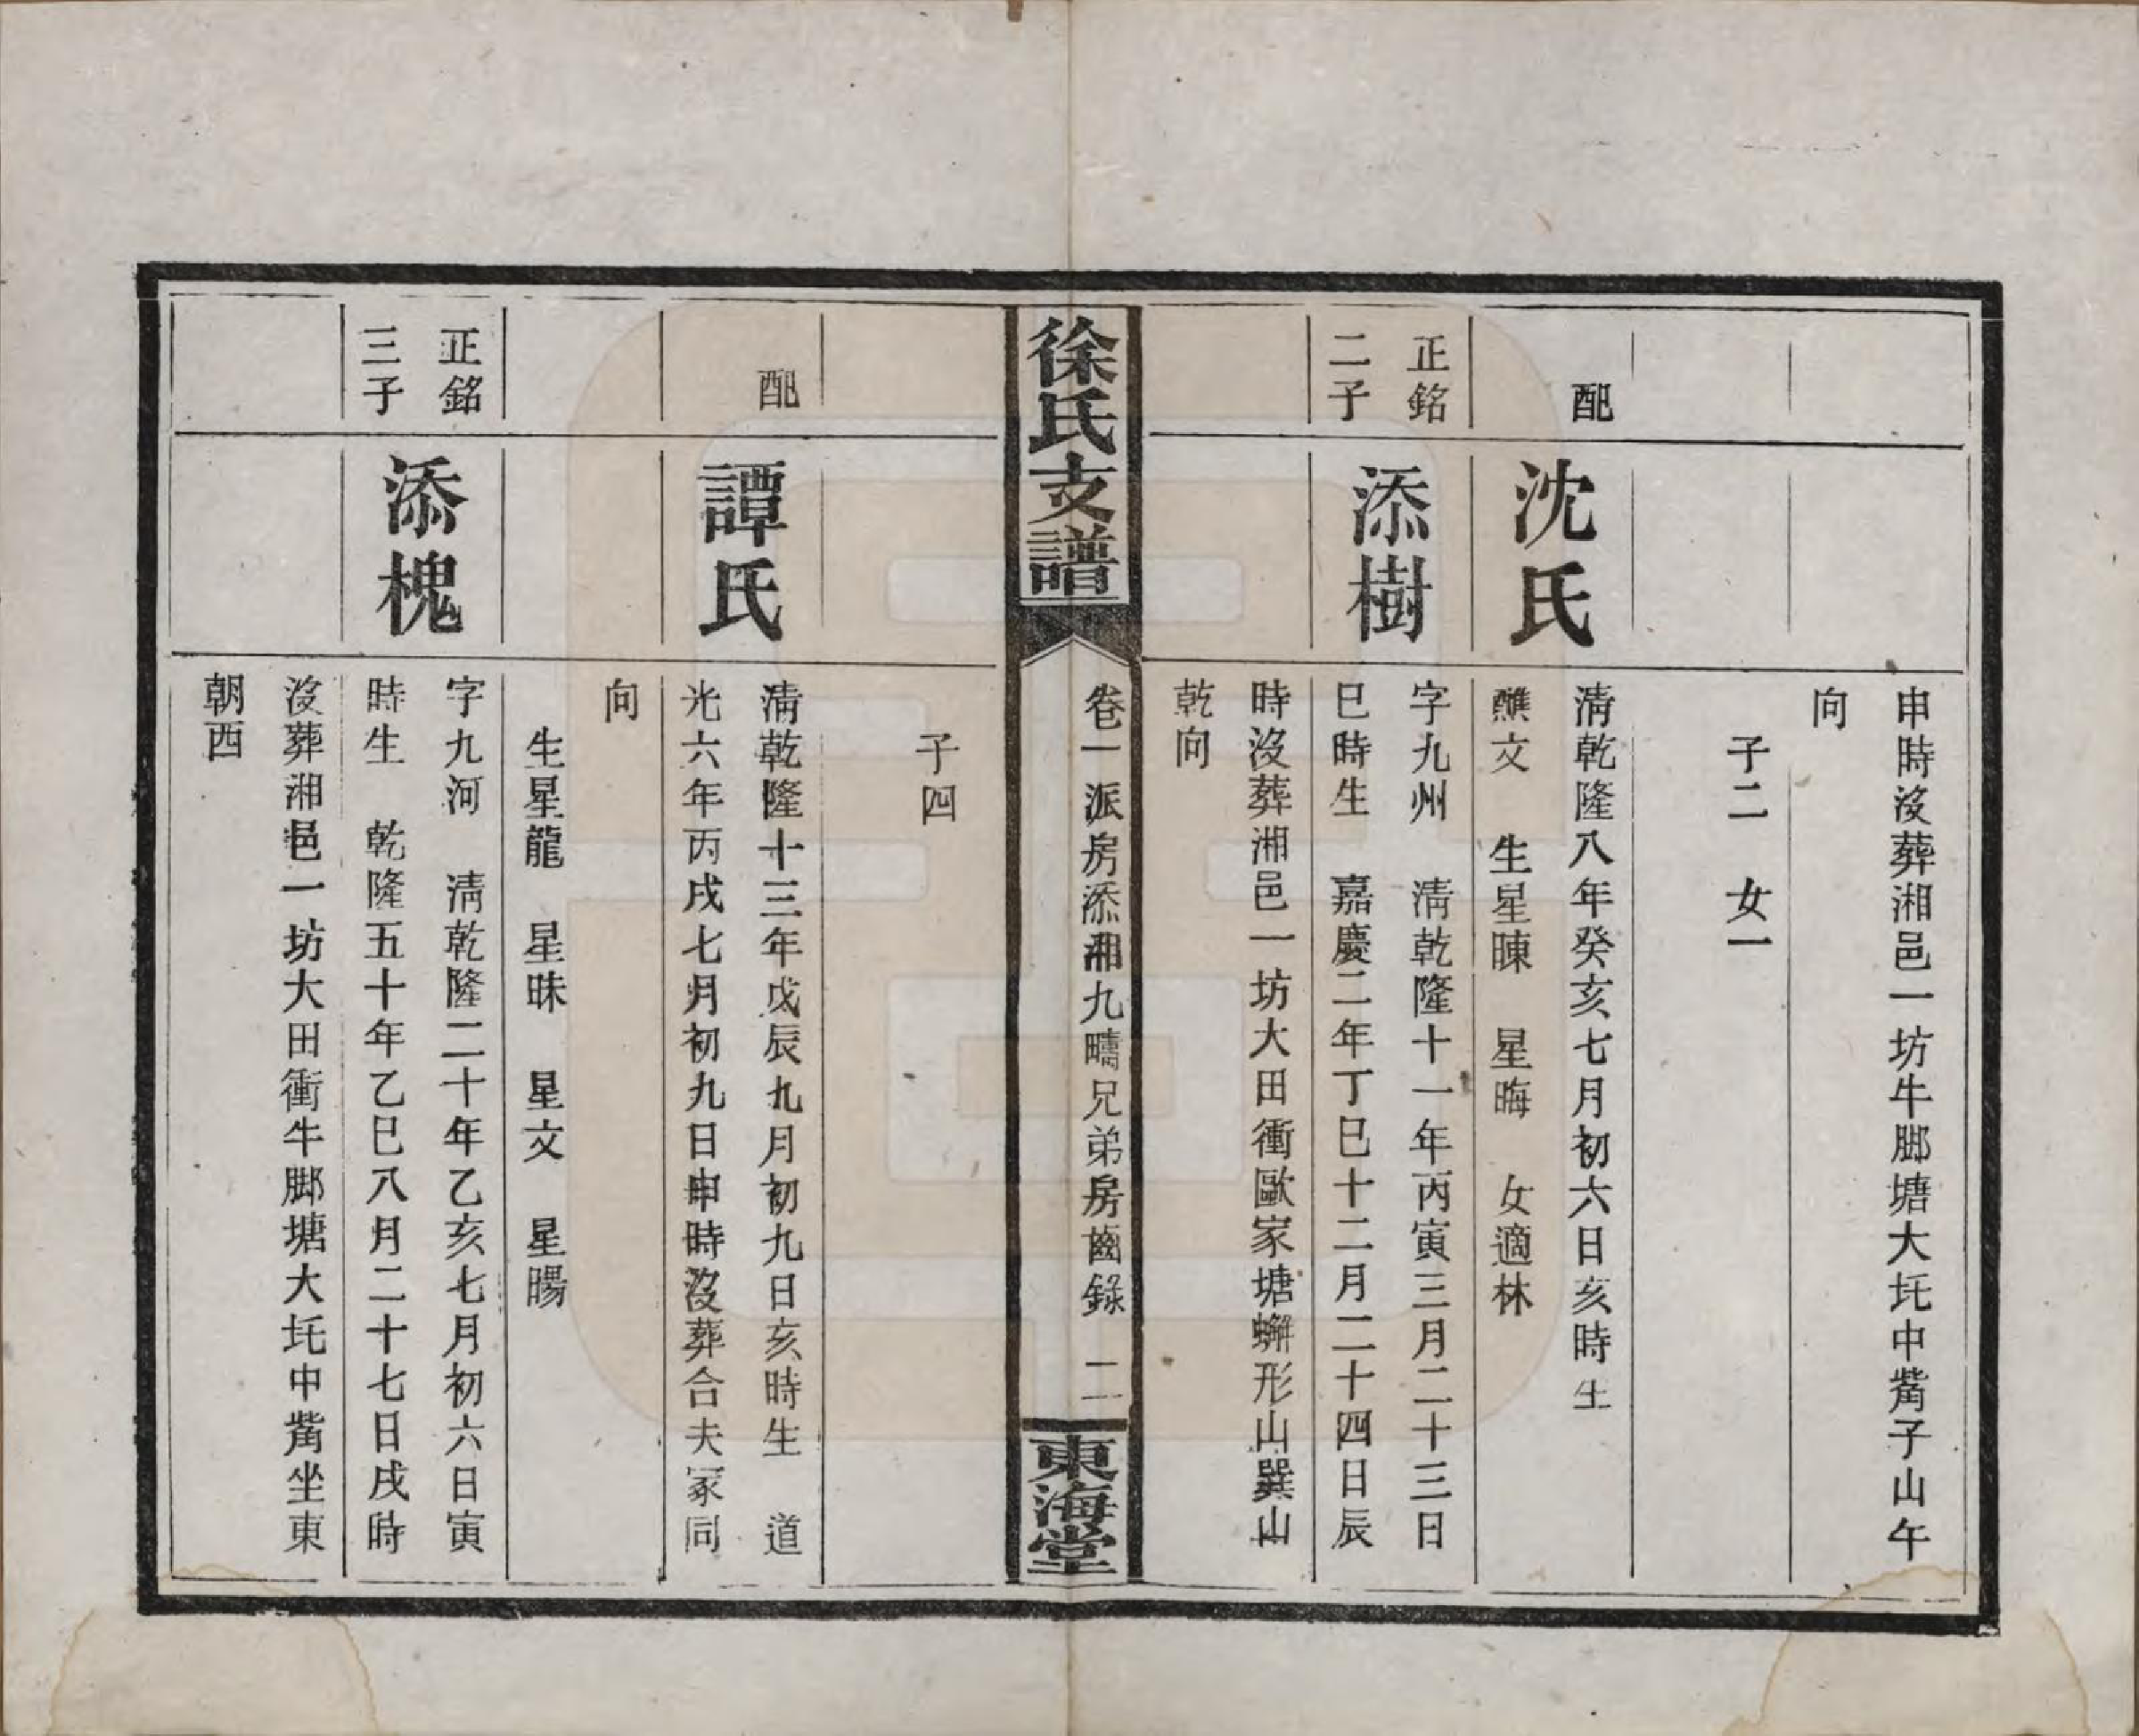 申時沒葬湘邑一坊牛脚塘大坵中觜子山午
向
子二　女一
配
沈氏
淸乾隆八年癸亥七月初六日亥時生
醮文　生星暕　星晦　女適林
正銘
二子
添樹
字九州　淸乾隆十一年丙寅三月二十三日
巳時生　嘉慶二年丁巳十二月二十四日辰
時沒葬湘邑一坊大田衝歐家塘蠏形山巽山
乾向
徐氏支譜
卷一派房添湘九疇兄弟房齒錄　二
東海堂
子四
配
譚氏
淸乾隆十三年戊辰九月初九日亥時生　道
光六年丙戌七月初九日申時沒葬合夫冢同
向
生星龍　星昧　星文　星暘
正銘
三子
添槐
字九河　淸乾隆二十年乙亥七月初六日寅
時生　乾隆五十年乙巳八月二十七日戌時
沒葬湘邑一坊大田衝牛脚塘大坵中觜坐東
朝西